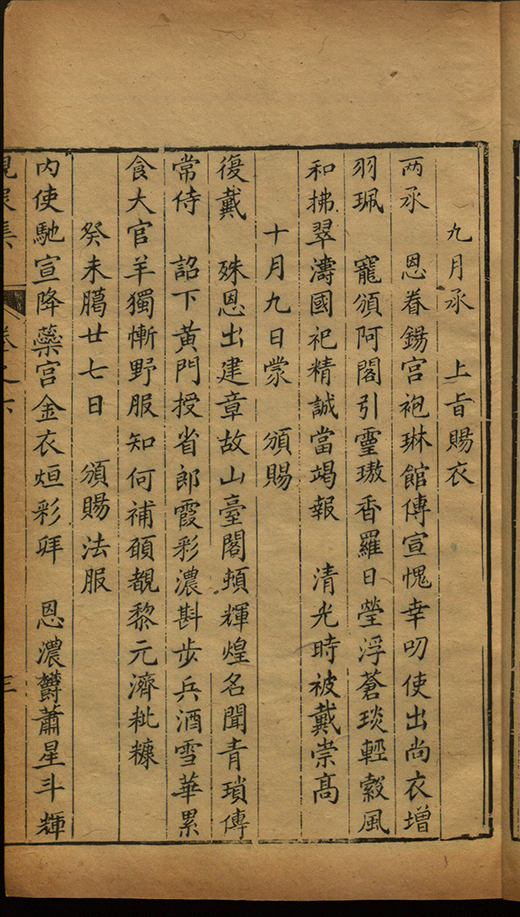 九月承　上旨賜衣
两承　恩眷錫宫袍琳館傳宣愧幸叨使出尚衣增
羽珮　寵頒阿閣引璗璈香羅日瑩浮蒼琰輕縠風
和拂翠濤國祀精誠當竭報　清光時被戴崇髙
十月九日䝉　頒賜
復戴　殊恩出建章故山臺閣頓輝煌名聞青瑣傳
常侍　詔下黄門授省郎霞彩濃斟步兵酒雪華累
食大官羊獨慚野服知何補碩覩黎元濟粃糠
癸未臈廿七日　頒賜法服
内使馳宣降蘂宫金衣烜彩拜　恩濃欝蕭星斗輝
卷之六
三